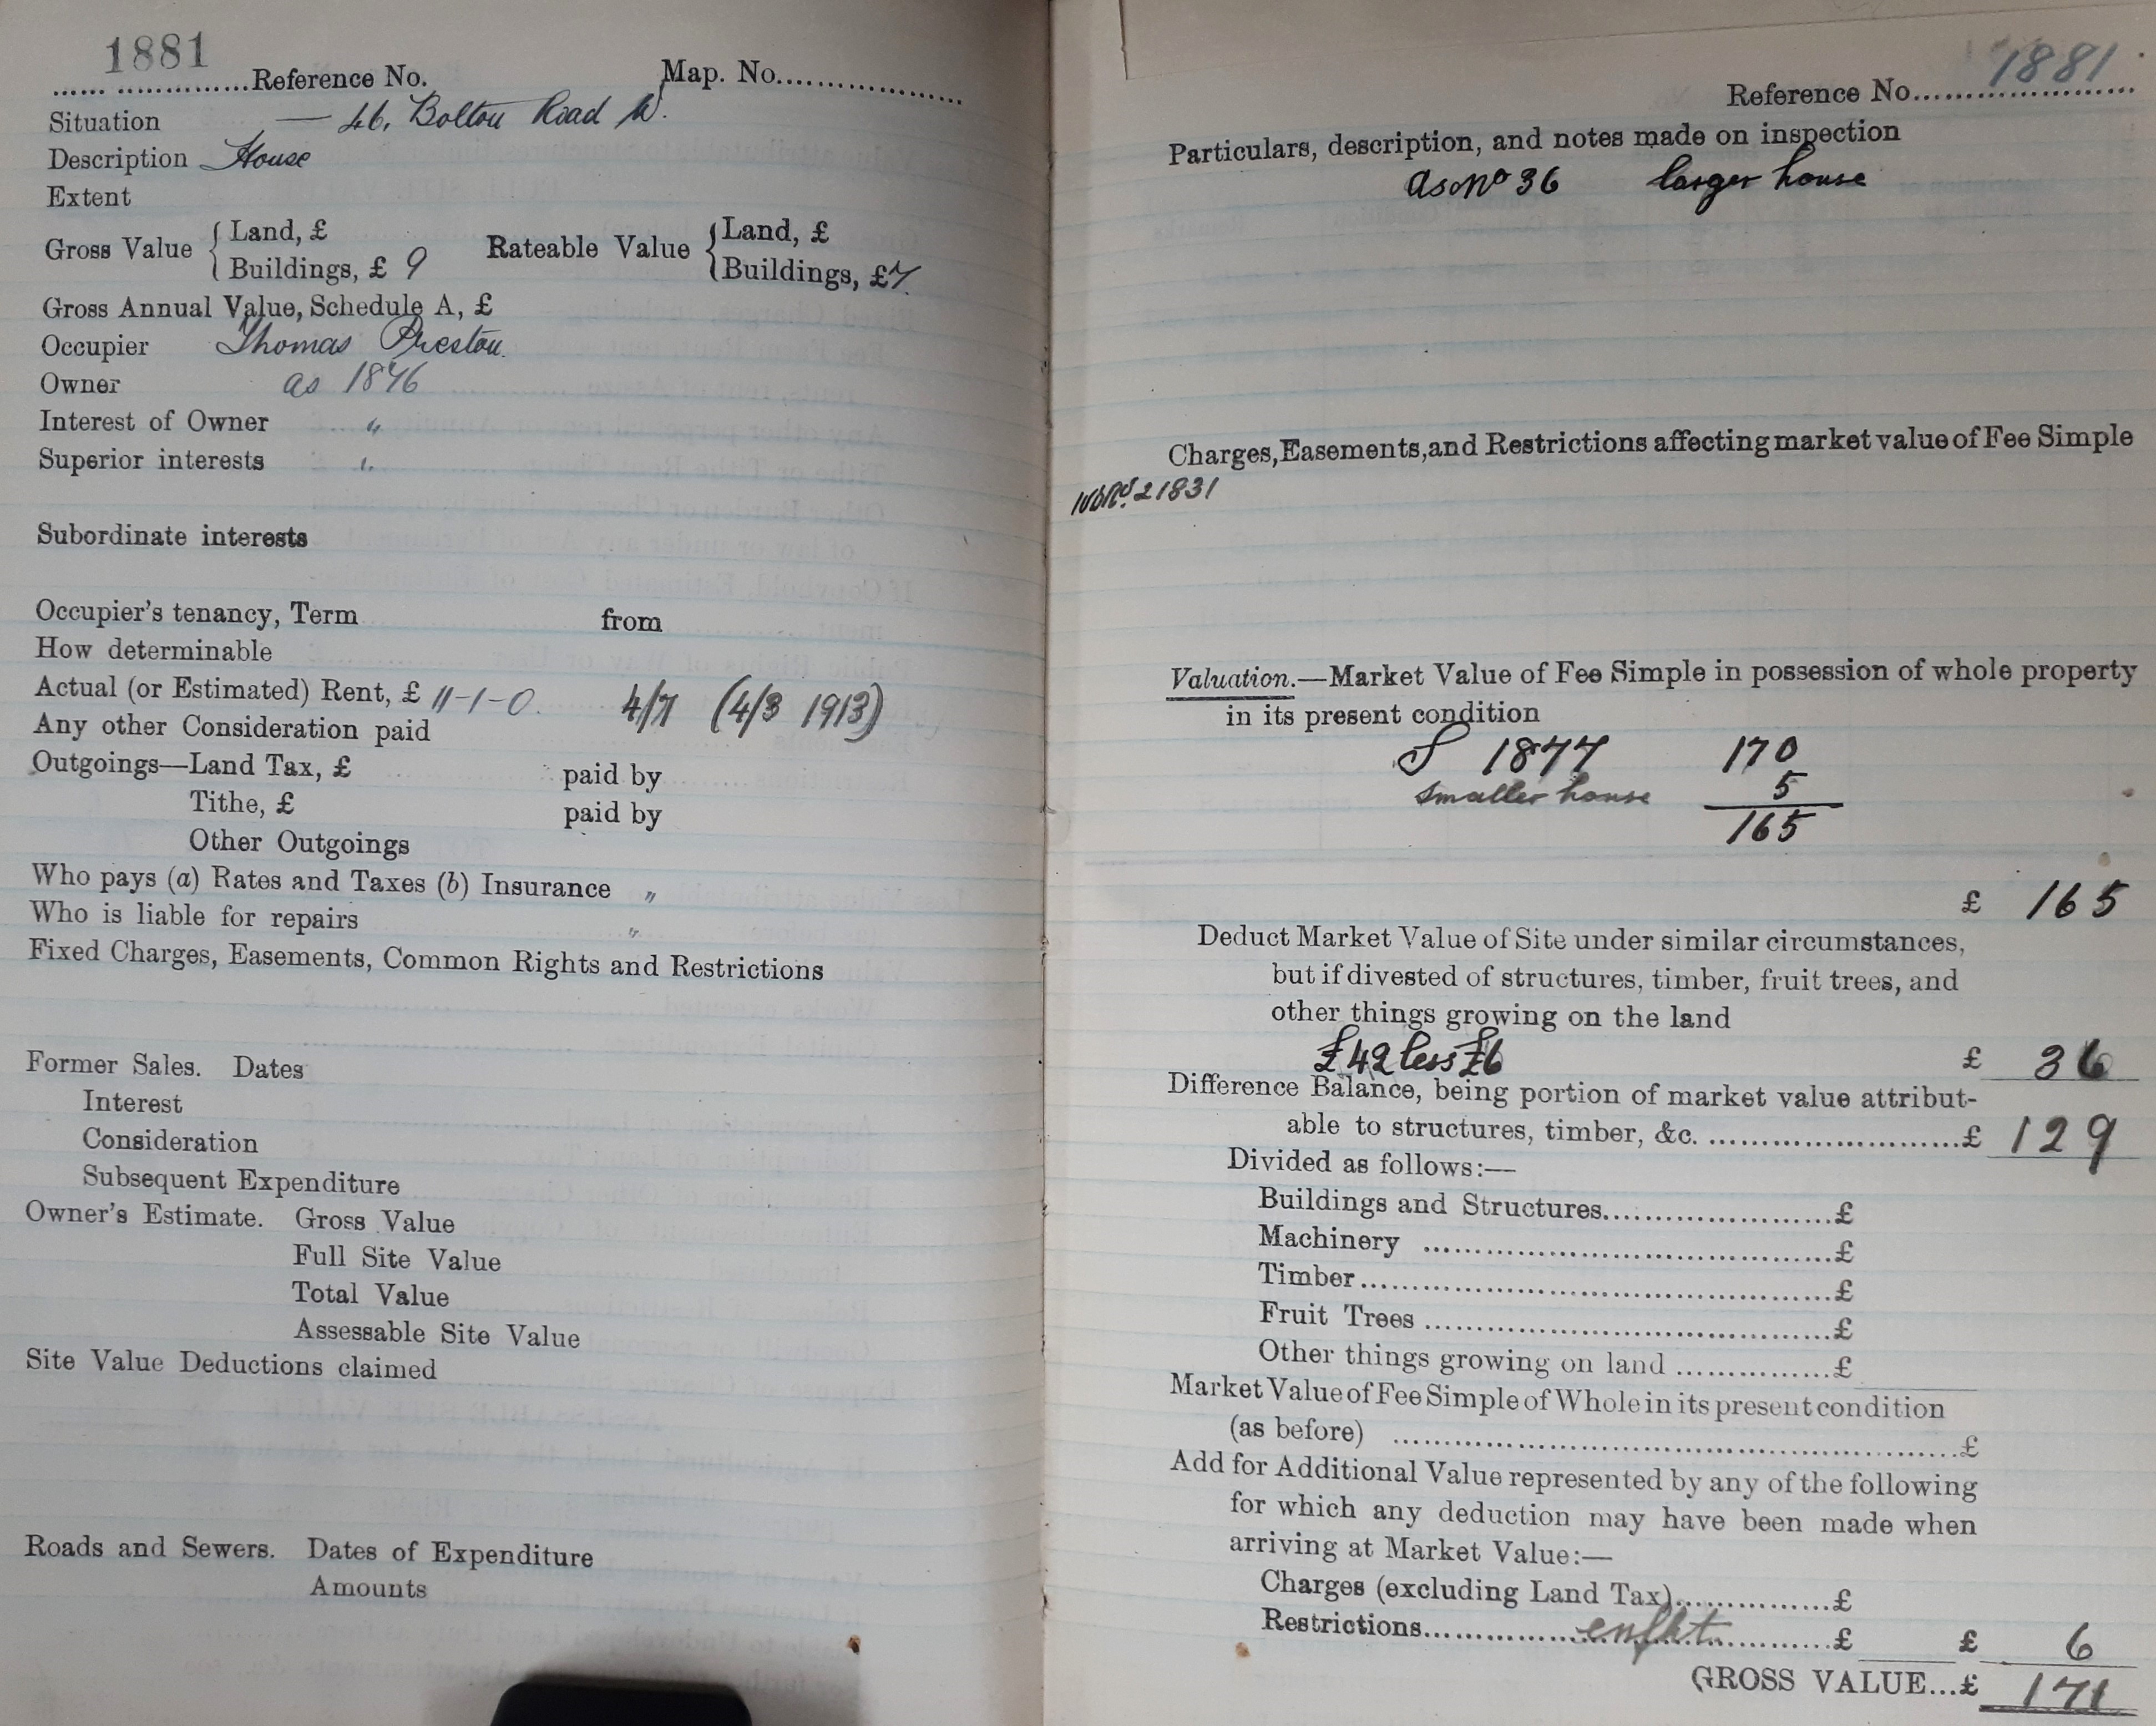 1881
Reference No. Map. No.
Situation — 46, Bolton Road W.
Description House
Extent
Gross Value { Land, £ Rateable Value { Land, £
Buildings, £ 9 Buildings, £7
Gross Annual Value, Schedule A, £
Occupier Thomas Preston
Owner as 1876
Interest of Owner "
Superior interests "
Subordinate interests
Occupier's tenancy, Term from
How determinable
Actual (or Estimated) Rent, £ 11-1-0. 4/7 (4/3 1913)
Any other Consideration paid
Outgoings—Land Tax, £ paid by
Tithe, £ paid by
Other Outgoings
Who pays (a) Rates and Taxes (b) Insurance "
Who is liable for repairs "
Fixed Charges, Easements, Common Rights and Restrictions
Former Sales. Dates
Interest
Consideration
Subsequent Expenditure
Owner's Estimate. Gross Value
Full Site Value
Total Value
Assessable Site Value
Site Value Deductions claimed
Roads and Sewers. Dates of Expenditure
Amounts
Reference No. 1881
Particulars, description, and notes made on inspection
as No 36 larger house
Charges, Easements, and Restrictions affecting market value of Fee Simple
21831
Valuation.—Market Value of Fee Simple in possession of whole property
in its present condition
1877 170
smaller house 5
165
£ 165
Deduct Market Value of Site under similar circumstances,
but if divested of structures, timber, fruit trees, and
other things growing on the land
£42 less £6 £ 36
Difference Balance, being portion of market value attribut-
able to structures, timber, &c. £ 129
Divided as follows:—
Buildings and Structures £
Machinery £
Timber £
Fruit Trees £
Other things growing on land £
Market Value of Fee Simple of Whole in its present condition
(as before) £
Add for Additional Value represented by any of the following
for which any deduction may have been made when
arriving at Market Value:—
Charges (excluding Land Tax) £
Restrictions enfht £ £ 6
GROSS VALUE...£ 171